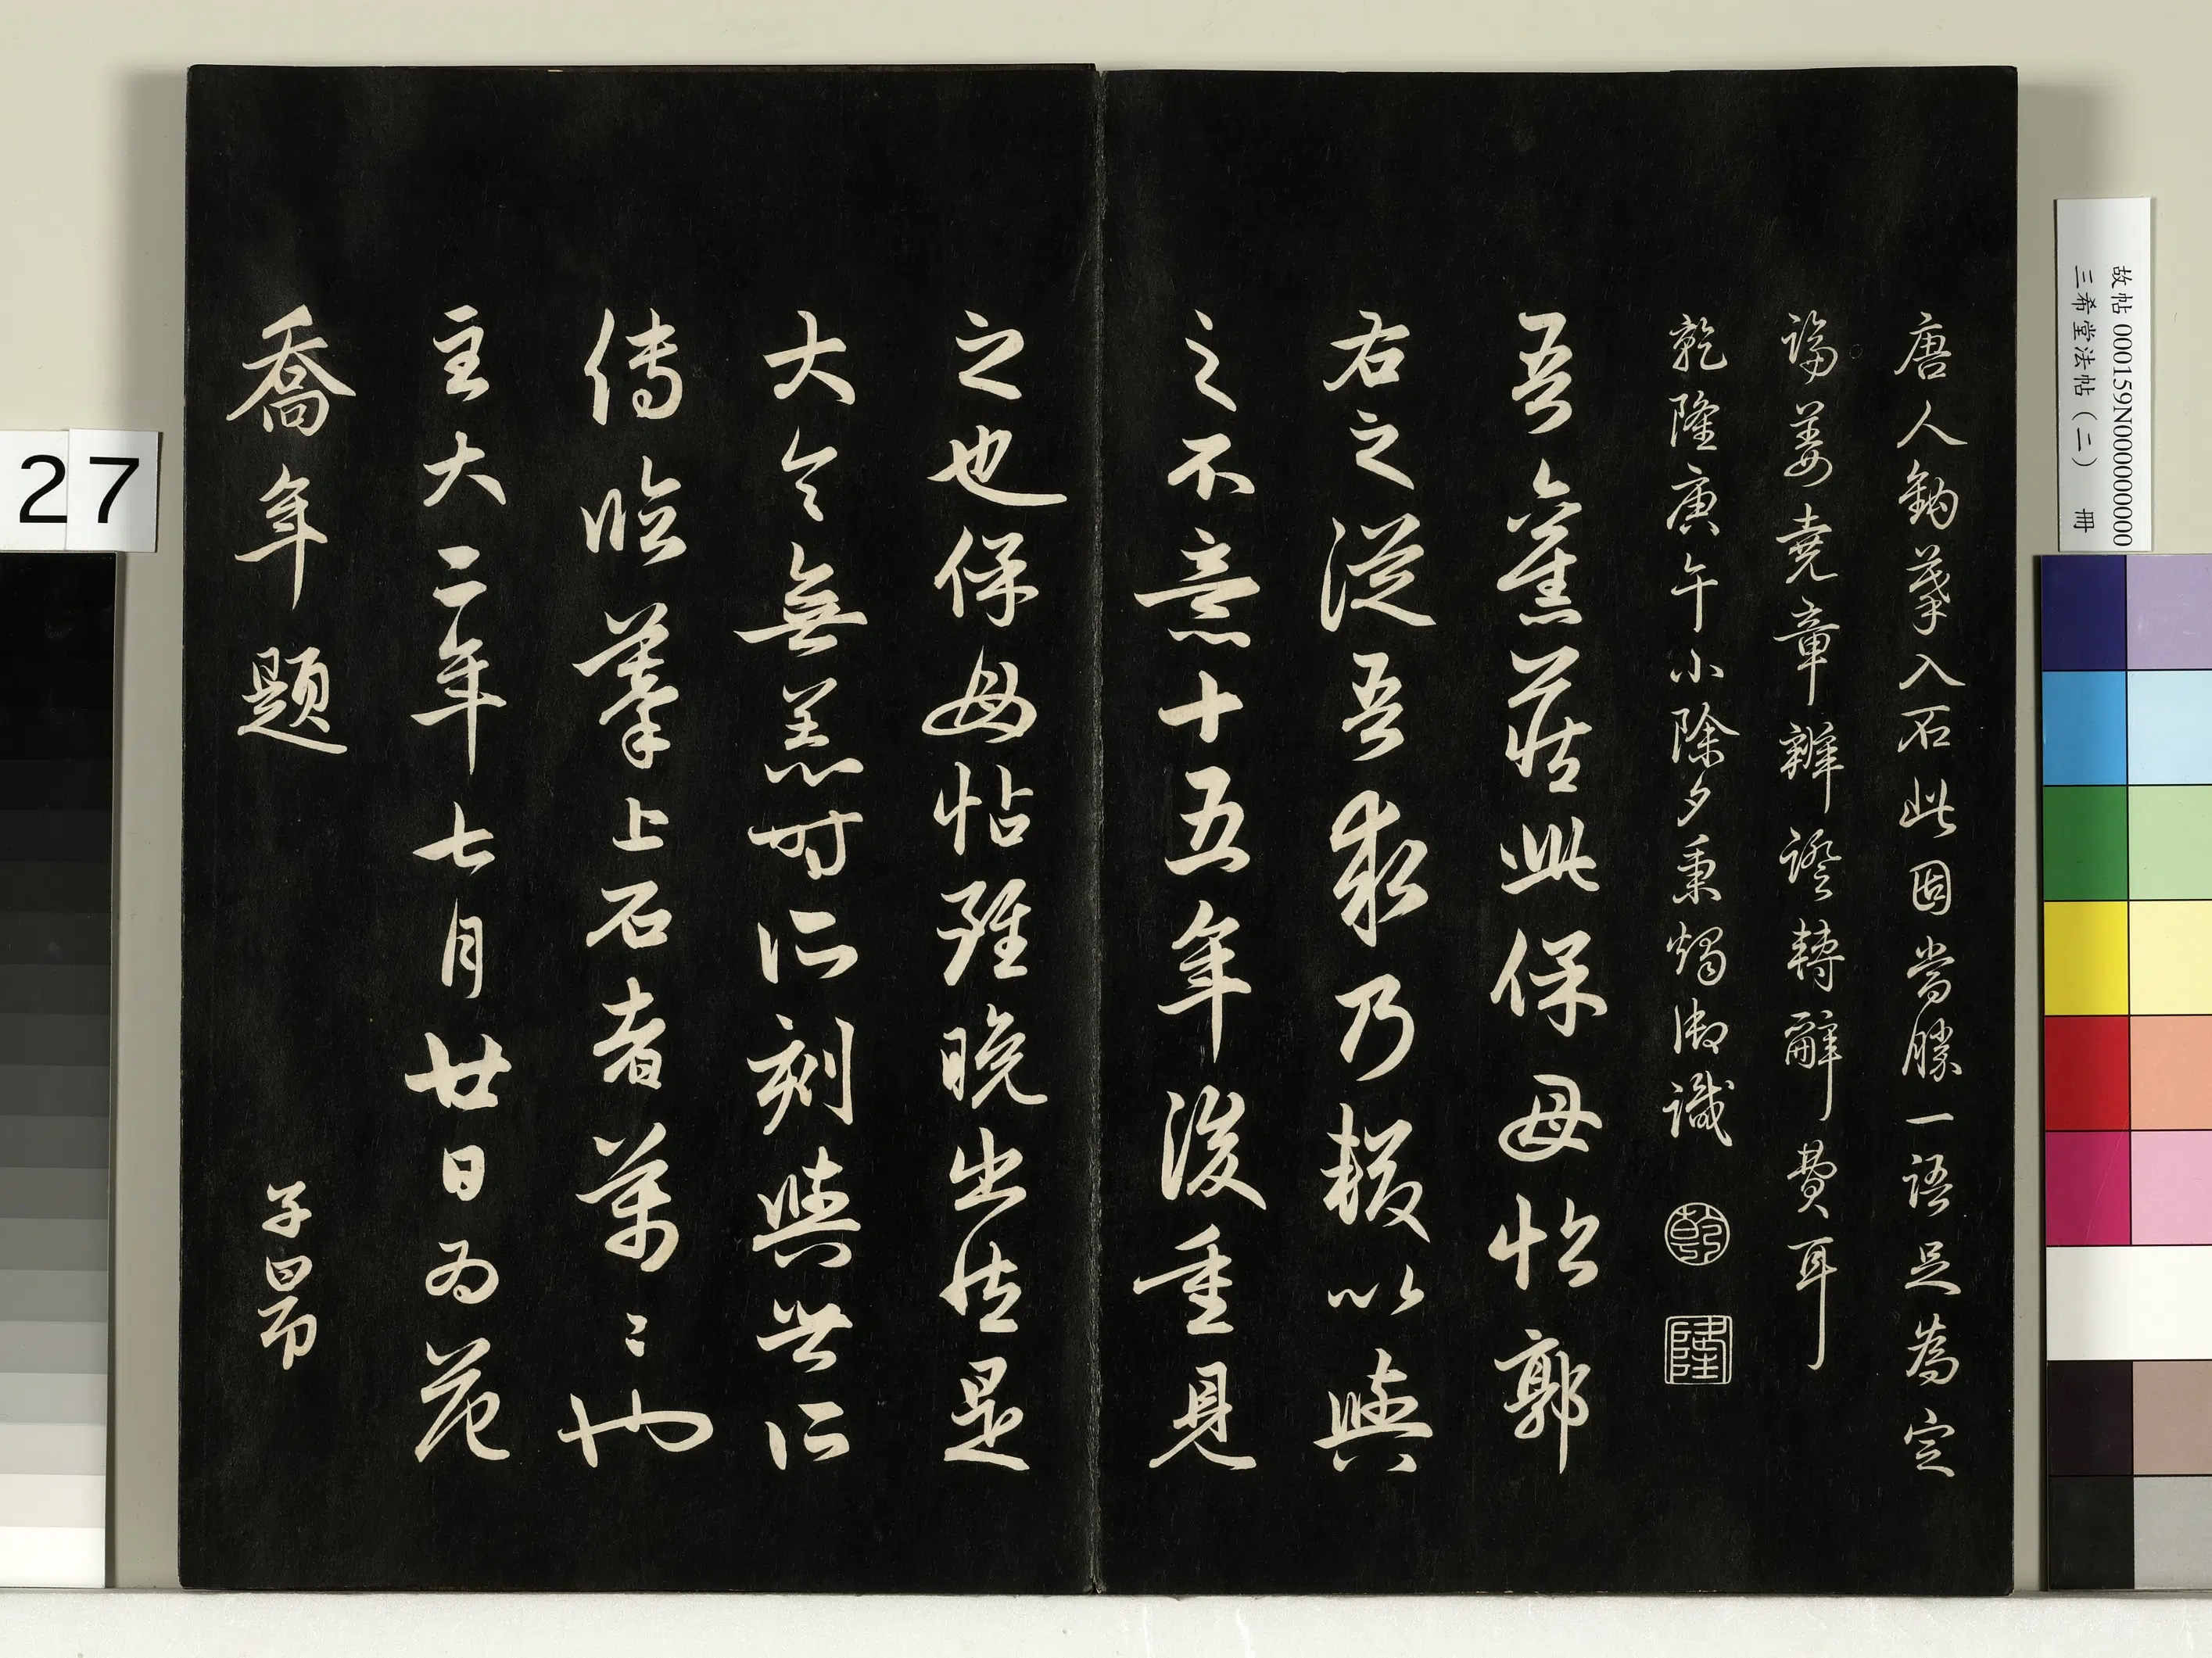 唐人鈎摹入石此固當勝一語足為定
論姜堯章辨證轉辭費耳
乾隆庚午小除夕秉燭御識
乾
隆
吾舊藏此保母帖郭
右之從吾求乃輟以與
之不意十五年後重見
之也保母帖雖晚出然是
大令無恙時所刻與世所
傳臨摹上石者萬〻也
至大二年七月廿日為范
喬年題 子昂
故帖 000159N000000000
三希堂法帖(二) 冊
27